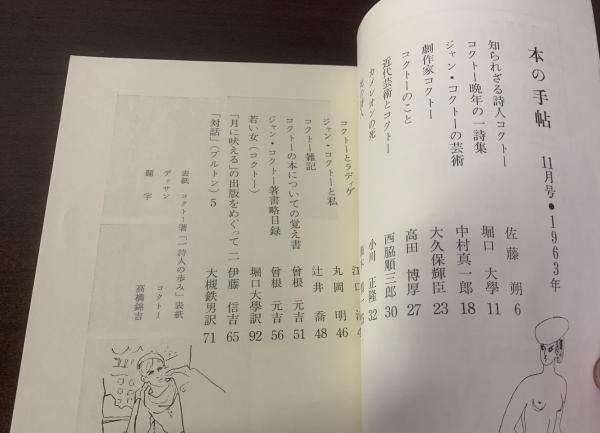 本の手帖 11月号●1963年
知られざる詩人コクトー 佐藤 朔 6
コクトー晩年の一詩集 堀口 大學 11
ジャン・コクトーの芸術 中村真一郎 18
劇作家コクトー 大久保輝臣 23
コクトーのこと 高田 博厚 27
近代芸術とコクトー 西脇順三郎 30
カメレオンの死 小川 正隆 32
コクトーとラディゲ 江口
ジャン・コクトーと私 丸岡 明 46
コクトー雑記 辻井 喬 48
コクトーの本についての覚え書 曾根 元吉 51
ジャン・コクトー著書略目録 曾根 元吉 56
若い女(コクトー) 堀口大學訳 92
「月に吠える」の出版をめぐって 二 伊藤 信吉 65
「対話」(ブルトン) 5 大槻鉄男訳 71
表紙 コクトー著「一詩人の歩み」表紙
デッサン コクトー
題字 高橋錦吉